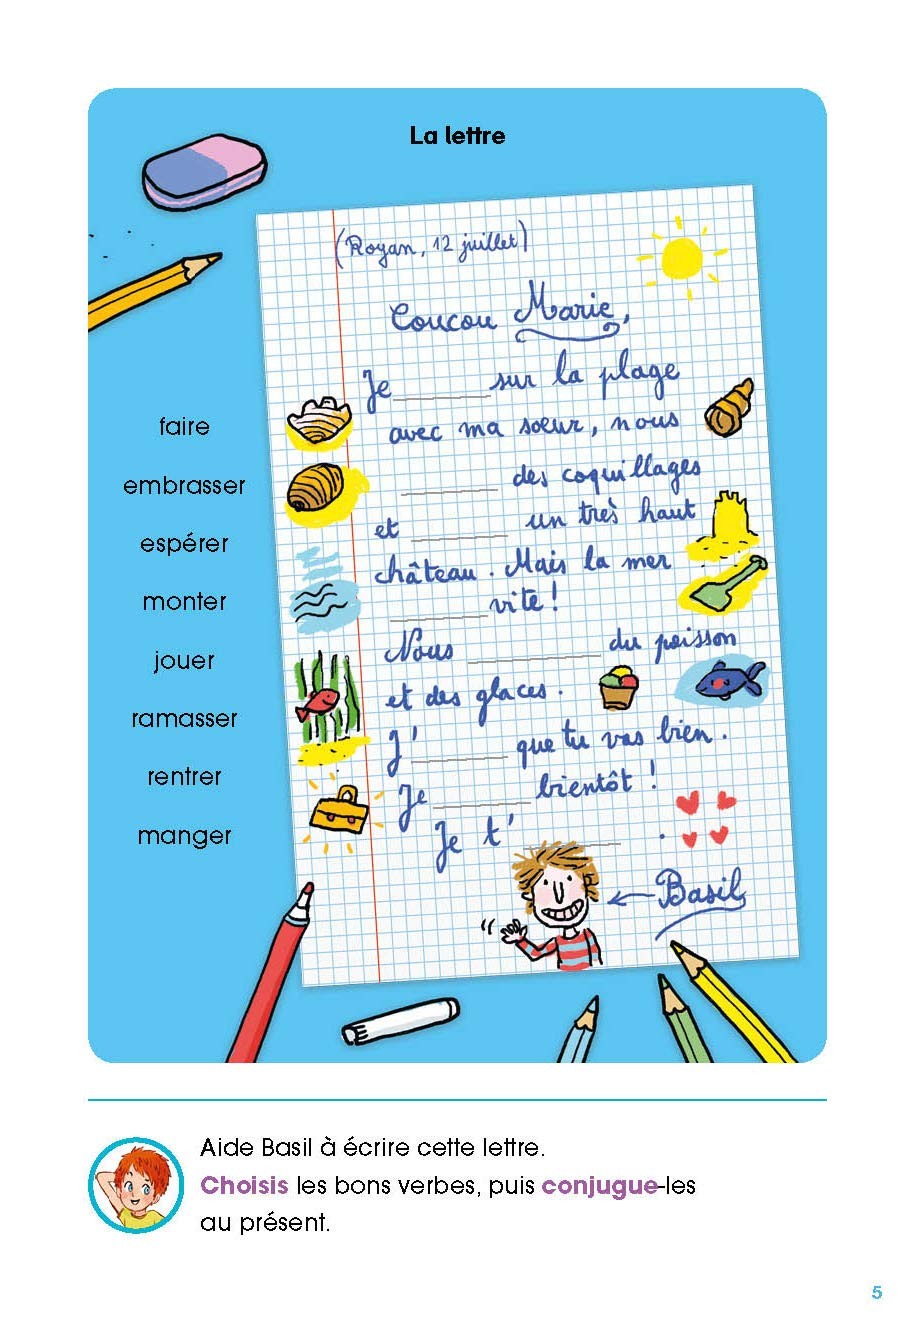 La lettre
(Royan, 12 juillet)
Coucou Marie,
Je ________ sur la plage
avec ma sœur, nous
________ des coquillages
et ________ un très haut
château. Mais la mer
________ vite !
Nous ________ du poisson
et des glaces.
J' ________ que tu vas bien.
Je ________ bientôt !
Je t' ________ .
Basil
faire
embrasser
espérer
monter
jouer
ramasser
rentrer
manger
Aide Basil à écrire cette lettre.
Choisis les bons verbes, puis conjugue-les
au présent.
5